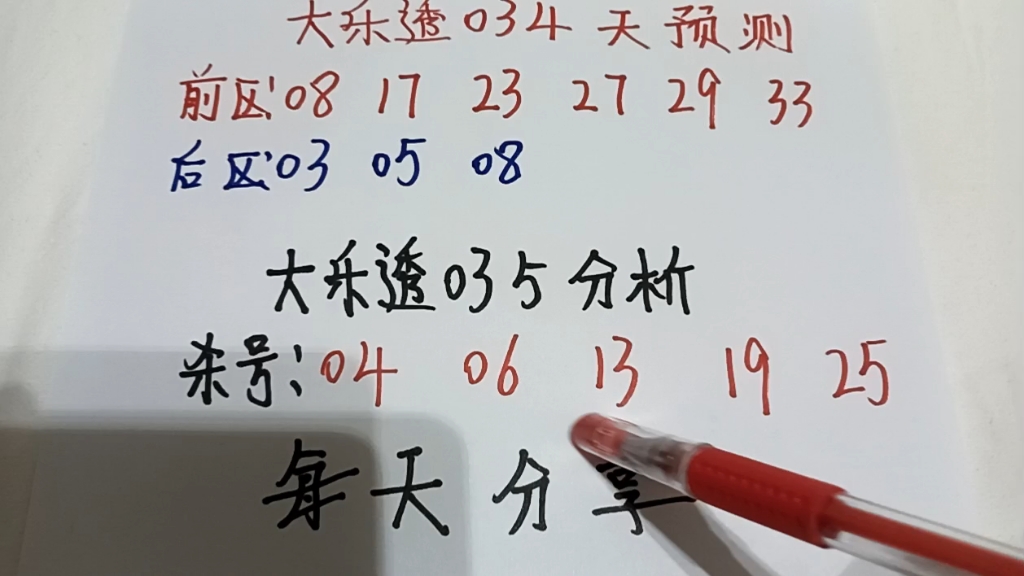 大乐透034天预测
前区:08 17 23 27 29 33
后区:03 05 08
大乐透035分析
杀号:04 06 13 19 25
每天分享